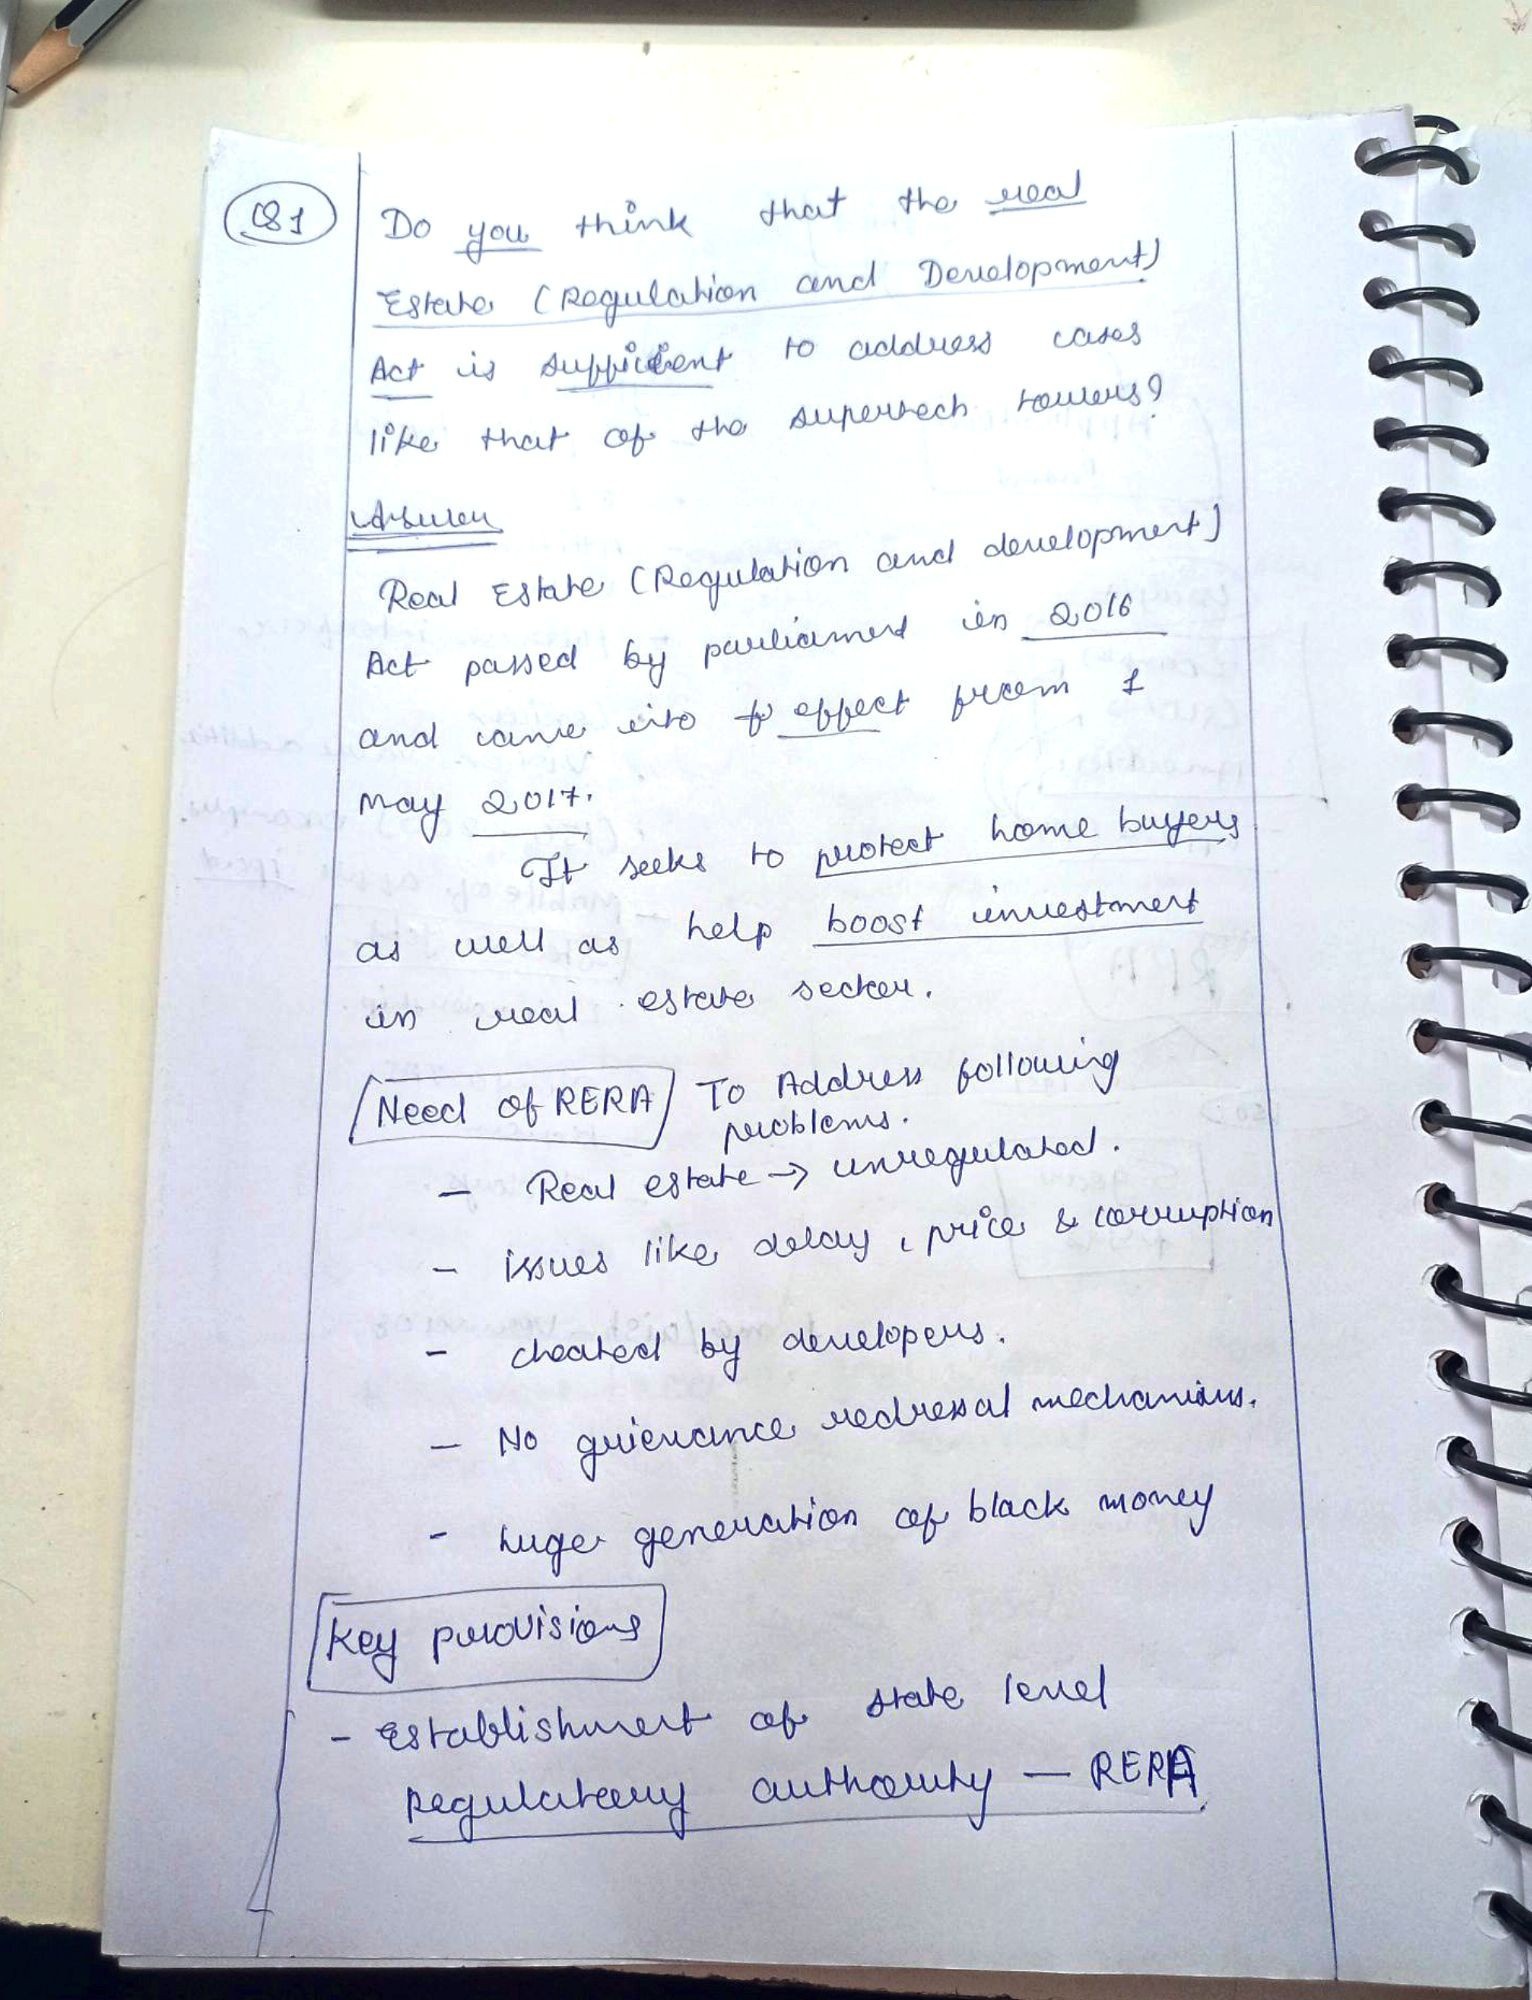 Q1
Do you think that the real
Estate (Regulation and Development)
Act is sufficient to address cases
like that of the supertech towers?
Answer
Real Estate (Regulation and development)
Act passed by parliament in 2016
and came into effect from 1
May 2017.
It seeks to protect home buyers
as well as help boost investment
in real estate sector.
Need of RERA To Address following
problems.
- Real estate → unregulated.
- issues like delay, price & corruption
- cheated by developers.
- No grievance redressal mechanism.
- huge generation of black money
Key provisions
- Establishment of state level
Regulatory authority — RERA